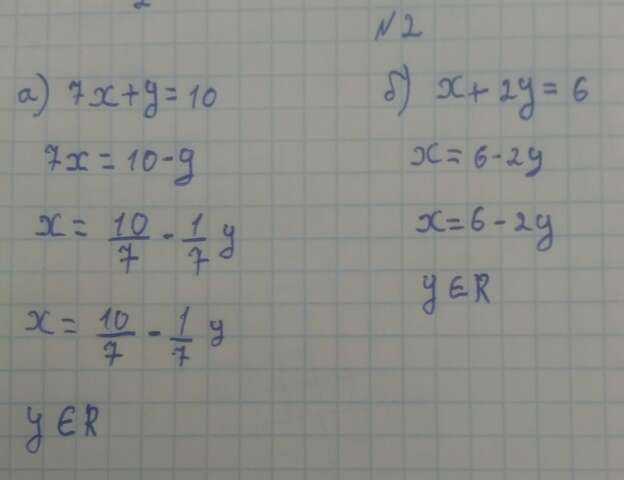 N2
а) 7x+y=10
7x=10-y
x= 10/7 - 1/7 y
x= 10/7 - 1/7 y
y∈R
б) x+2y=6
x=6-2y
x=6-2y
y∈R